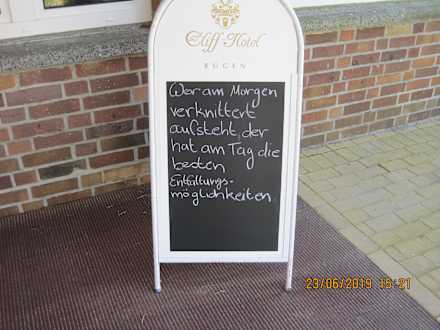 Cliff Hotel
RÜGEN
Wer am Morgen
verknittert
aufsteht, der
hat am Tag die
besten
Entfaltungs-
möglichkeiten
23/06/2019 15:21